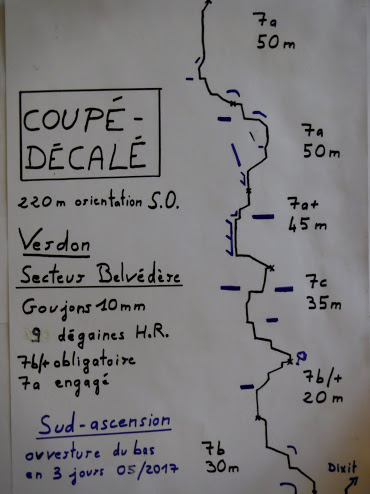 7a
50m
COUPÉ-
DÉCALÉ
7a
50m
220m orientation S.O.
7a+
45m
Verdon
Secteur Belvédère
7c
35m
Goujons 10mm
9 dégaines H.R.
7b/+ obligatoire
7a engagé
7b/+
20m
Sud-ascension
ouverture du bas
en 3 jours 05/2017
7b
30m
Dixit